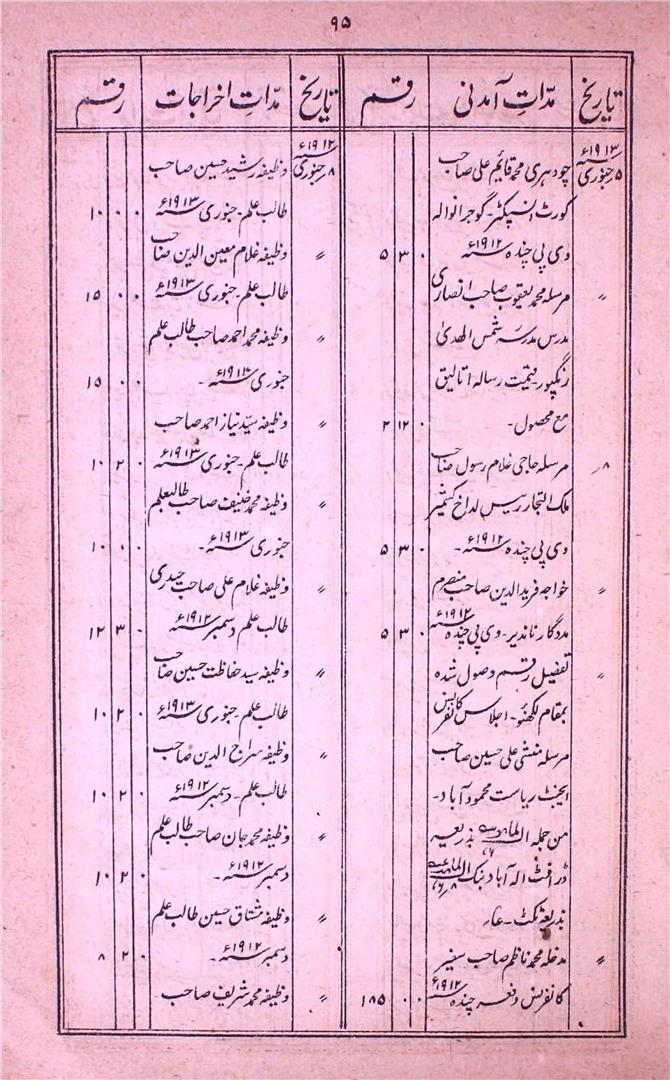 ۹۵
تاریخ مدّاتِ آمدنی رقم تاریخ مدّاتِ اخراجات رقم
۵ جنوری ۱۹۱۳ء چودہری محمد قایم علی صاحب
کورٹ انسپکٹر۔ گوجرانوالہ
وی پی چندہ ۱۹۱۲ء ۰ ۳ ۵
〃 مرسلہ محمد یعقوب صاحب انصاری
مدرس مدرسہ شمس الھدیٰ
رنگپور۔ قیمت رسالہ اتالیق
مع محصول۔ ۰ ۱۲ ۲
۸ مرسلہ حاجی غلام رسول صاحب
ملک التجار رئیس لداخ کشمیر
وی پی چندہ ۱۹۱۲ء۔ ۰ ۳ ۵
〃 خواجہ فرید الدین صاحب منصرم
مددگار ناندیر۔ وی پی چندہ ۱۹۱۲ء ۰ ۳ ۵
〃 تفصیل رقم وصول شدہ
بمقام لکھنؤ۔ اجلاس کانفرنس
مرسلہ منشی علی حسین صاحب
ایجنٹ ریاست محمود آباد۔
من جملہ بذریعہ
ڈرافٹ الہ آباد بنک
بذریعہ ٹکٹ۔
〃 مدخلہ محمد ناظم صاحب سفیر
کانفرنس دفعہ چندہ ۱۹۱۲ء ۰ ۰ ۱۸۵
۸ جنوری ۱۹۱۲ء وظیفہ رشید حسین صاحب
طالب علم۔ جنوری ۱۹۱۳ء ۰ ۰ ۱۰
〃 وظیفہ غلام معین الدین صاحب
طالب علم۔ جنوری ۱۹۱۳ء ۰ ۰ ۱۵
〃 وظیفہ محمد احمد صاحب طالب علم
جنوری ۱۹۱۳ء۔ ۰ ۰ ۱۵
〃 وظیفہ سیّد نیاز احمد صاحب
طالب علم۔ جنوری ۱۹۱۳ء ۰ ۲ ۱۰
〃 وظیفہ محمد حنیف صاحب طالبعلم
جنوری ۱۹۱۳ء۔ ۰ ۰ ۱۰
〃 وظیفہ غلام علی صاحب حیدری
طالب علم دسمبر ۱۹۱۲ء ۰ ۳ ۱۲
〃 وظیفہ سید حفاظت حسین صاحب
طالب علم۔ جنوری ۱۹۱۳ء ۰ ۲ ۱۰
〃 وظیفہ سراج الدین صاحب
طالب علم۔ دسمبر ۱۹۱۲ء ۰ ۲ ۱۰
〃 وظیفہ محمد جان صاحب طالب علم
دسمبر ۱۹۱۲ء۔ ۰ ۲ ۱۰
〃 وظیفہ مشتاق حسین طالب علم
دسمبر ۱۹۱۲ء۔ ۰ ۲ ۸
〃 وظیفہ محمد شریف صاحب